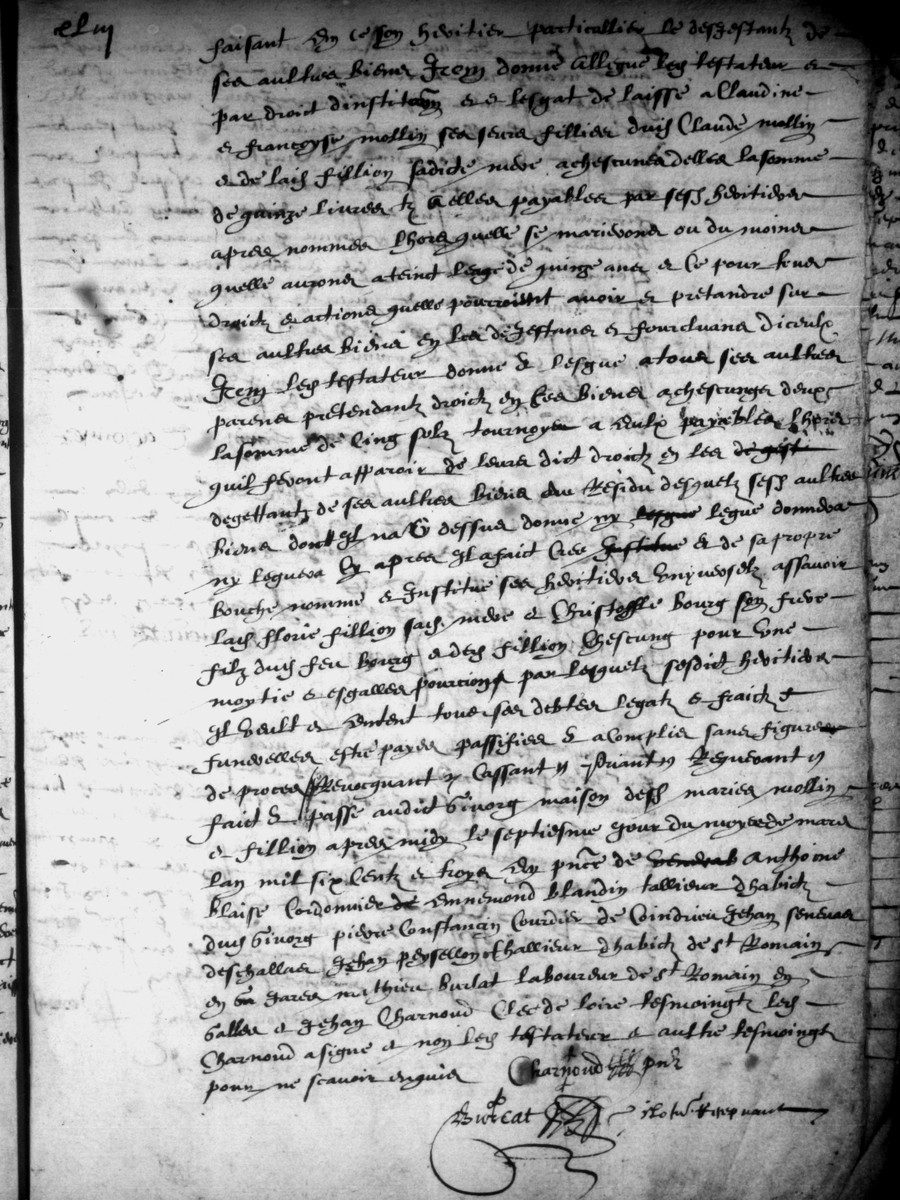 faisant en ce son heritier particullier le desgestantz de
ses aultres biens Item donne allegue led testateur et
par droict dinstitution et lesgat de laisse a Claudine
et francoyse mollin ses seurs fillies dud Claude mollin
et de lad fillion sadicte mere a chescunes delles la somme
de quinze livres tz a elles payables par sesd heritiers
apres nommes lhors quelle se marieront ou du moins
quelle auront ateinct leage de quinze ans et ce pour tous
droictz et actions quelle pourroient avoir et pretandre sur
ses aultres biens en les degestans et fourcluans diceulx
Item led testateur donne & lesgue a tous ses aultres
parens pretendantz droictz en ses biens a chescungs deulx
la somme de cinq solz tournoys a eulx payables lhors
quil feront apparoir de leurs dict droictz en les
degettantz de ses aultres biens au residu desquelz sesd aultres
biens dont il na cy dessus donne ny legue donnera
ny leguera cy apres il a faict cree et de sa propre
bouche nomme et institue ses heritiers unyverselz assavoir
lad florie fillion sad mere et Christoffle bourg son frere
filz dud feu bourg et de lad fillion chescung pour une
moytie et esgalles pourcions par lesquelz sesdict heritiers
il veult et entent tous ses debtes legatz et fraictz
funerelles estre payes passifies & acomplis sans figures
de proces Revocquant Cassant priant Requerant
faict & passe audict Givorg maison desd maries mollin
et fillion apres midy le septiesme jour du moys de mars
lan mil six centz et troys en pnce de Anthoine
blaise Cordonnier Ennemond blandin tallieur dhabictz
dud Givorg pierre Constancin Courdier de Coindrieu Jehan
deschallas Jehan peysellon challieur dhabictz de st Romain
en Jares mathieu burlat laboureur de st Romain en
Galles et Jehan Charnoud Clerc de loire tesmoingtz led
Charnoud a signe et non led testateur et aultre tesmoingt
pour ne scavoir enquis Charnoud pnt